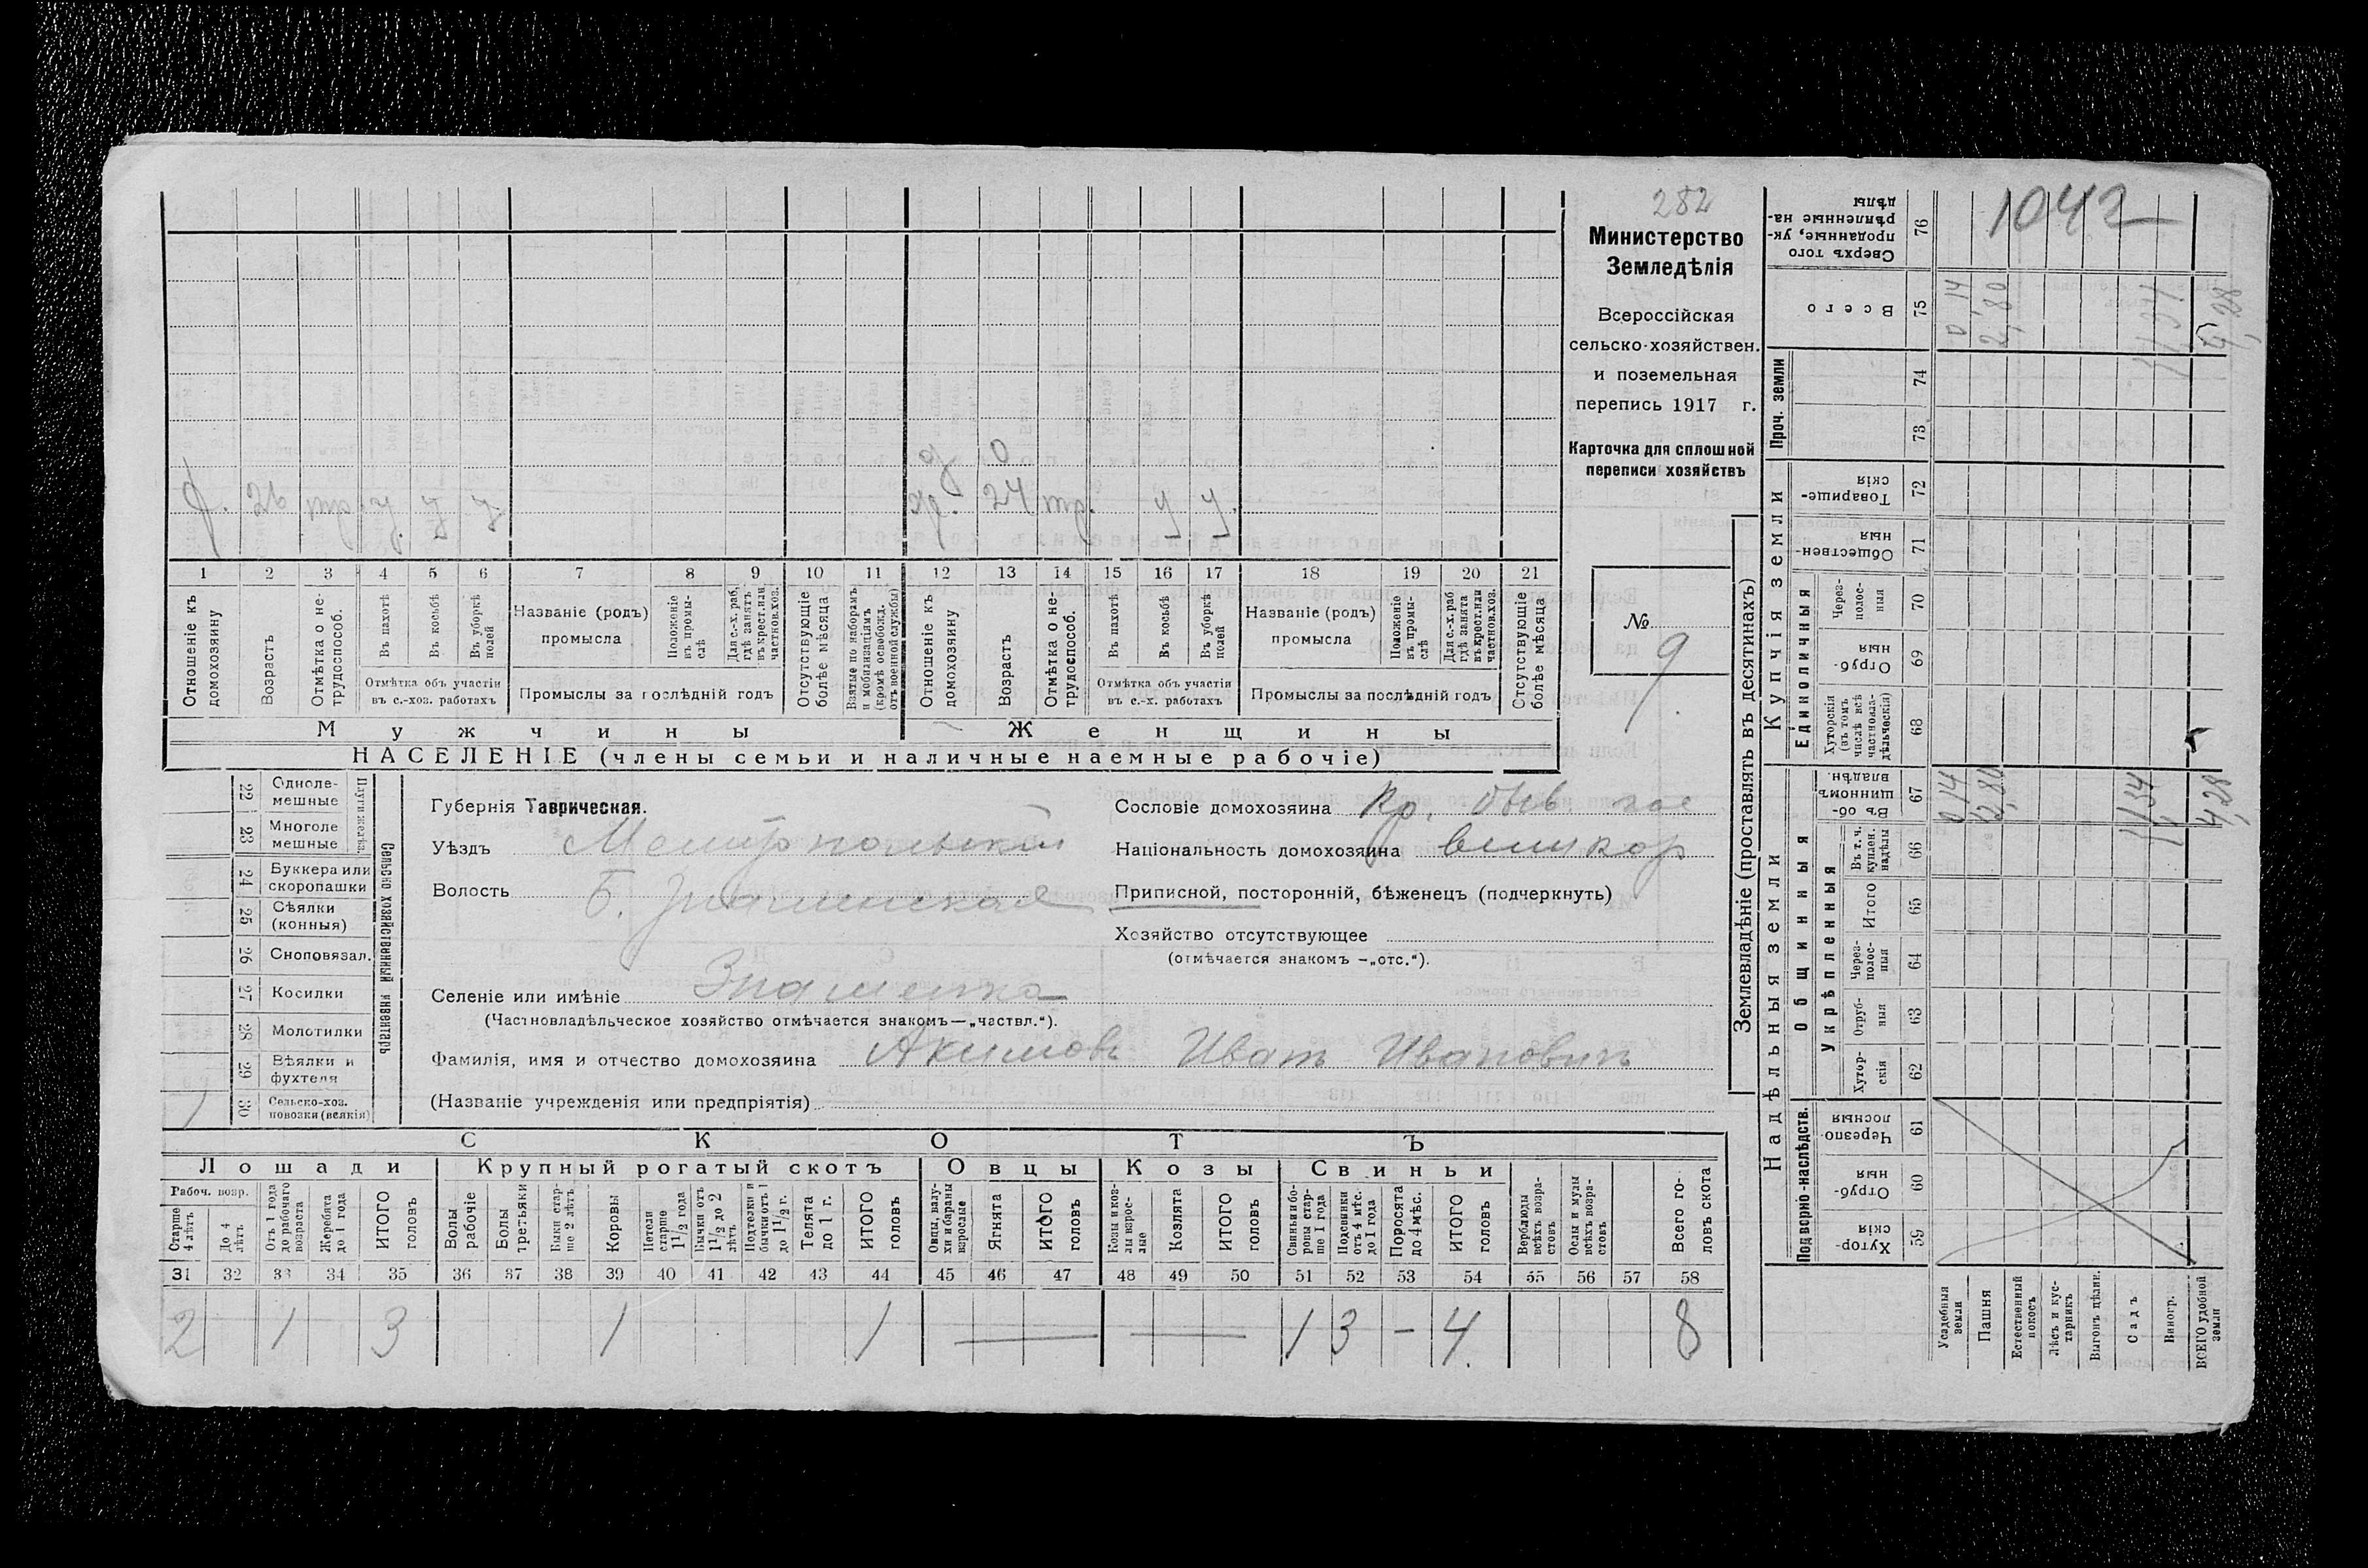 282
Министерство
Земледѣлія
Всероссійская
сельско-хозяйствен.
и поземельная
перепись 1917 г.
Карточка для сплошной
переписи хозяйствъ
№
9.
д 0
ж. 24 тр. у у.
26 у у
1 2 3 4 5 6 7 8 9 10 11 12 13 14 15 16 17 18 19 20 21
Отношеніе къ домохозяину
Возрастъ
Отмѣтка о нетрудоспособ.
Въ пахотѣ
Въ косьбѣ
Въ уборкѣ полей
Отмѣтка объ участіи
въ с.-хоз. работахъ
Названіе (родъ)
промысла
Положеніе въ промыслѣ
Для с.-х. раб. гдѣ занятъ въ крест. или частнов. хоз.
Промыслы за послѣдній годъ
Отсутствующіе болѣе мѣсяца
Взятые по наборамъ и мобилизаціямъ (кромѣ освобожд. отъ военной службы)
Отношеніе къ домохозяину
Возрастъ
Отмѣтка о нетрудоспособ.
Въ пахотѣ
Въ косьбѣ
Въ уборкѣ полей
Отмѣтка объ участіи
въ с.-х. работахъ
Названіе (родъ)
промысла
Положеніе въ промыслѣ
Для с.-х. раб. гдѣ занята въ крест. или частнов. хоз.
Промыслы за послѣдній годъ
Отсутствующіе болѣе мѣсяца
Мужчины Женщины
НАСЕЛЕНІЕ (члены семьи и наличные наемные рабочіе)
Сельско хозяйственный инвентарь
Плуги желѣз.
22 Одноле-
мешные
23 Многоле
мешные
24 Буккера или
скоропашки
25 Сѣялки
(конныя)
26 Сноповязал.
27 Косилки
28 Молотилки
29 Вѣялки и
фухтеля
30 Сельско-хоз.
повозки (всякія)
1
Губернія Таврическая.
Уѣздъ Мелитопольскій
Волость Б. Знаменская
Сословіе домохозяина Кр.
Національность домохозяина великор
Приписной, посторонній, бѣженецъ (подчеркнуть)
Хозяйство отсутствующее
(отмѣчается знакомъ —„отс.“).
Селеніе или имѣніе Знаменка
(Частновладѣльческое хозяйство отмѣчается знакомъ—„частвл.“).
Фамилія, имя и отчество домохозяина Акимовъ Иванъ Ивановичъ
(Названіе учрежденія или предпріятія)
СКОТЪ
Лошади Крупный рогатый скотъ Овцы Козы Свиньи
Рабоч. возр.
Старше 4 лѣтъ
До 4 лѣтъ
Отъ 1 года до рабочаго возраста
Жеребята до 1 года
ИТОГО головъ
Волы рабочіе
Волы третьяки
Быки старше 2 лѣтъ
Коровы
Нетели старше 1 1/2 года
Бычки отъ 1 1/2 до 2 лѣтъ
Подтелки и бычки отъ 1 до 1 1/2 г.
Телята до 1 г.
ИТОГО головъ
Овцы, валухи и бараны взрослые
Ягнята
ИТОГО головъ
Козы и козлы взрослые
Козлята
ИТОГО головъ
Свиньи и бороны старше 1 года
Подсвинки отъ 4 мѣс. до 1 года
Поросята до 4 мѣс.
ИТОГО головъ
Верблюды всѣхъ возрастовъ
Ослы и мулы всѣхъ возрастовъ
Всего головъ скота
31 32 33 34 35 36 37 38 39 40 41 42 43 44 45 46 47 48 49 50 51 52 53 54 55 56 57 58
2 1 3 1 1 — — 1 3 — 4. 8
Землевладѣніе (проставлять въ десятинахъ)
Надѣльныя земли
Купчія земли
Проч. земли
Подворно-наслѣдств.
Общинныя
Укрѣпленныя
Единоличныя
Сверхъ того проданные, укрѣпленные надѣлы 76
Всего 75
74
73
Товарищескія 72
Общественныя 71
Черезполосныя 70
Отрубныя 69
Хуторскія (въ томъ числѣ всѣ частновладѣльческія) 68
Въ общинномъ владѣн. 67
Въ т. ч. куплен. надѣлы 66
Итого 65
Черезполосныя 64
Отрубныя 63
Хуторскія 62
Черезполосныя 61
Отрубныя 60
Хуторскія 59
1042
0,14
2,80
1,34
4,28
0,14
2,80
1,34
4,28
Усадебныя земли
Пашня
Естественный покосъ
Лѣсъ и кустарникъ
Выгонъ цѣлин.
Садъ
Виногр.
ВСЕГО удобной земли